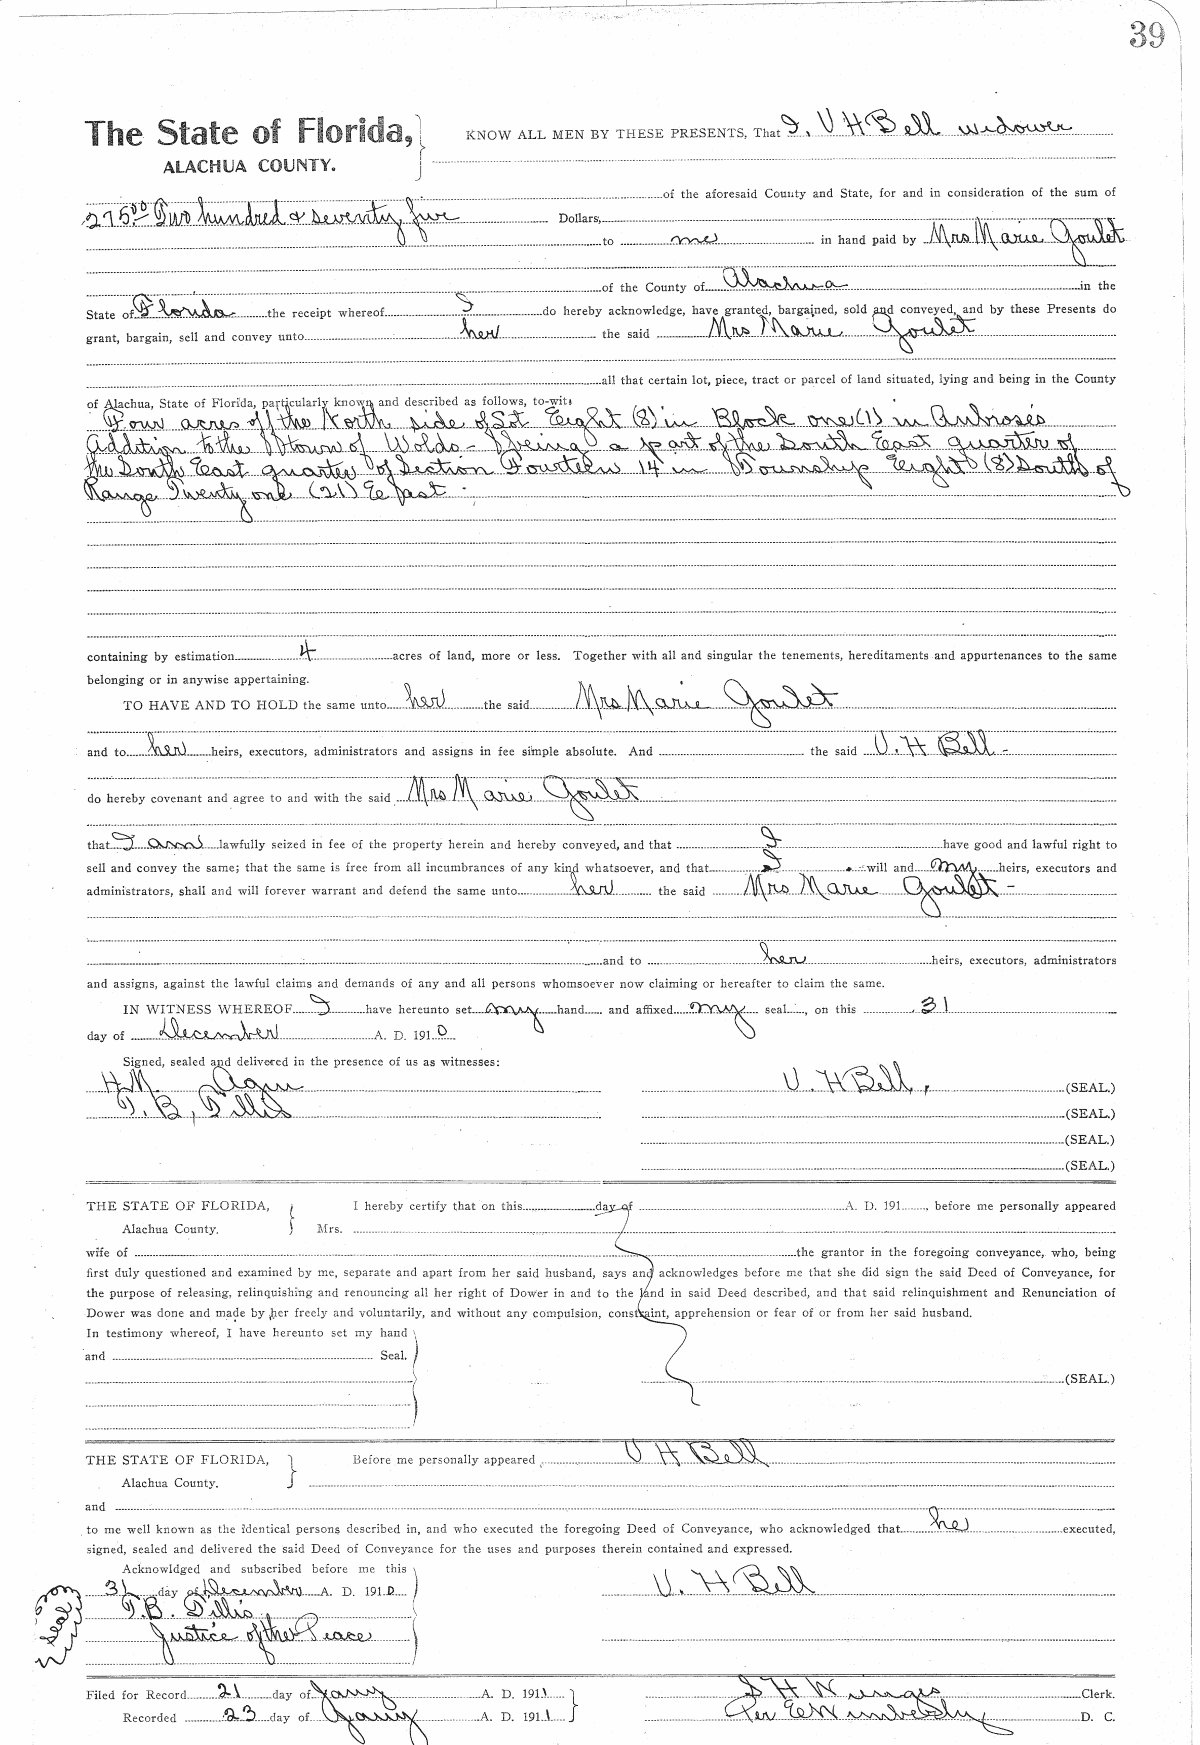 39
The State of Florida, KNOW ALL MEN BY THESE PRESENTS, That I, V H Bell widower
ALACHUA COUNTY.
of the aforesaid County and State, for and in consideration of the sum of
275.00 Two hundred & seventy five Dollars,
to me in hand paid by Mrs Marie Goulet
of the County of Alachua in the
State of Florida the receipt whereof I do hereby acknowledge, have granted, bargained, sold and conveyed, and by these Presents do
grant, bargain, sell and convey unto her the said Mrs Marie Goulet
all that certain lot, piece, tract or parcel of land situated, lying and being in the County
of Alachua, State of Florida, particularly known and described as follows, to-wit:
Four acres off the North side of Lot Eight (8) in Block one (1) in Ambrose's
Addition to the Town of Waldo - being a part of the South East quarter of
the South East quarter of Section Fourteen 14 in Township Eight (8) South of
Range Twenty one (21) East
containing by estimation 4 acres of land, more or less. Together with all and singular the tenements, hereditaments and appurtenances to the same
belonging or in anywise appertaining.
TO HAVE AND TO HOLD the same unto her the said Mrs Marie Goulet
and to her heirs, executors, administrators and assigns in fee simple absolute. And the said V. H Bell -
do hereby covenant and agree to and with the said Mrs Marie Goulet
that I am lawfully seized in fee of the property herein and hereby conveyed, and that I have good and lawful right to
sell and convey the same; that the same is free from all incumbrances of any kind whatsoever, and that I will and my heirs, executors and
administrators, shall and will forever warrant and defend the same unto her the said Mrs Marie Goulet -
and to her heirs, executors, administrators
and assigns, against the lawful claims and demands of any and all persons whomsoever now claiming or hereafter to claim the same.
IN WITNESS WHEREOF I have hereunto set my hand and affixed my seal, on this 31
day of December A. D. 1910
Signed, sealed and delivered in the presence of us as witnesses:
H M. V. H Bell, (SEAL.)
T. B. Tillis (SEAL.)
(SEAL.)
(SEAL.)
THE STATE OF FLORIDA, I hereby certify that on this day of A. D. 191 , before me personally appeared
Alachua County. Mrs.
wife of the grantor in the foregoing conveyance, who, being
first duly questioned and examined by me, separate and apart from her said husband, says and acknowledges before me that she did sign the said Deed of Conveyance, for
the purpose of releasing, relinquishing and renouncing all her right of Dower in and to the land in said Deed described, and that said relinquishment and Renunciation of
Dower was done and made by her freely and voluntarily, and without any compulsion, constraint, apprehension or fear of or from her said husband.
In testimony whereof, I have hereunto set my hand
and Seal.
(SEAL.)
THE STATE OF FLORIDA, Before me personally appeared V H Bell
Alachua County.
and
to me well known as the identical persons described in, and who executed the foregoing Deed of Conveyance, who acknowledged that he executed,
signed, sealed and delivered the said Deed of Conveyance for the uses and purposes therein contained and expressed.
Acknowldged and subscribed before me this
31 day of December A. D. 1910 V. H Bell
T. B. Tillis
Seal Justice of the Peace
Filed for Record 21 day of Jany A. D. 1911 S H Wienges Clerk.
Recorded 23 day of Jany A. D. 1911 Per E Wimberly D. C.